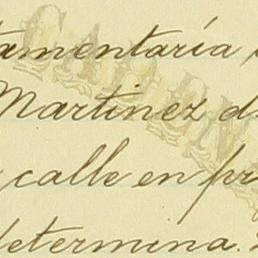 tamentaría
Martinez d
calle en pr
determina.